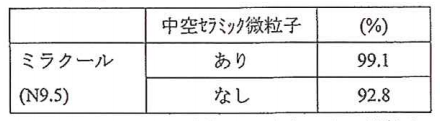 中空ｾﾗﾐｯｸ微粒子 (%)
ミラクール あり 99.1
(N9.5) なし 92.8